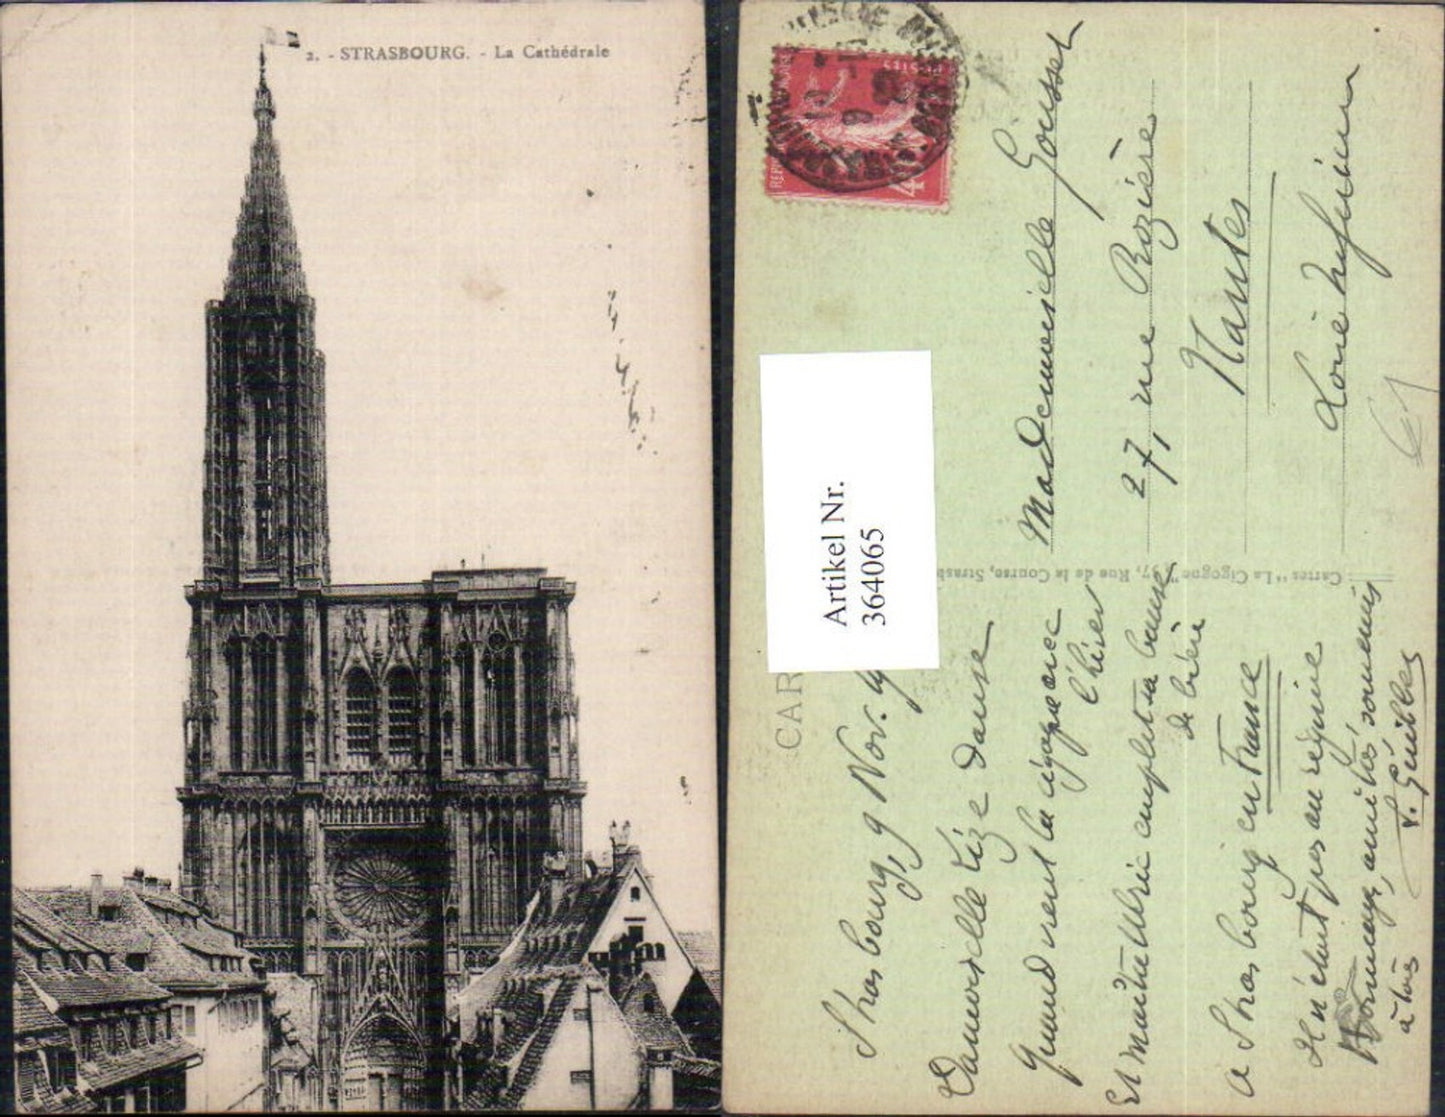 2. - STRASBOURG. - La Cathédrale
POSTES
Artikel Nr.
364065
CAR
Cartes "La Cigogne" 37, Rue de la Course, Strasb
Mademoiselle Gousset
27, rue Rozière
Nantes
Loire Inférieure
Strasbourg, 9 Nov.
Damoiselle Lize danse
Quand vient la cigogne avec
l'hiver
Et maître Ulric emplit sa panse
de bière
à Strasbourg en France
Il n'était pas au régime
Hommages, amitiés, souvenirs
à tous